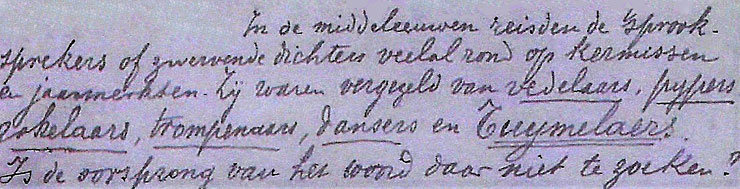 In de middeleeuwen reisden de sprook-
sprekers of zwervende dichters veelal rond op kermissen
en jaarmerkten. Zij waren vergezeld van vedelaars, pypers
gokelaars, trompenaars, dansers en Tuymelaers.
Is de oorsprong van het woord daar niet te zoeken?